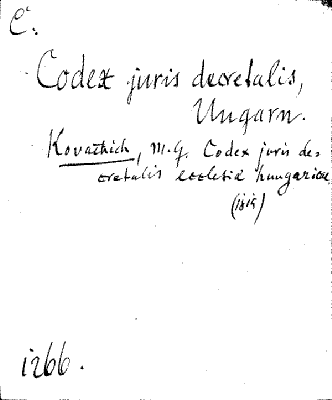 C.
Codex juris decretalis,
Ungarn.
Kovachich, M.G. Codex juris de-
cretalis ecclesiæ hungaricæ
(1815)
1266.